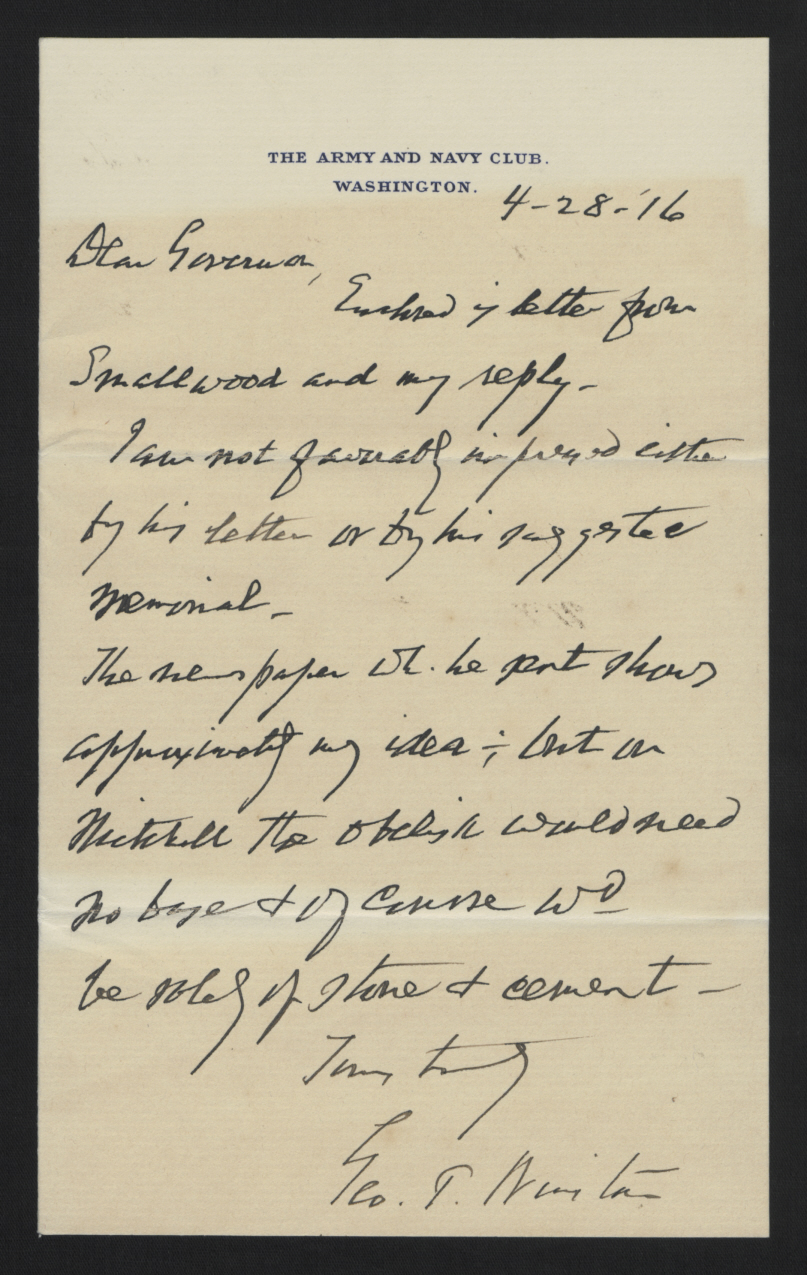 THE ARMY AND NAVY CLUB.
WASHINGTON.
4-28-'16
Dear Governor,
Enclosed is letter from
Smallwood and my reply-
I am not favorably impressed either
by his letter or by his suggested
memorial-
The newspaper wh. he sent shows
approximately my idea; but on
Mitchell the obelisk would need
no base & of course wd
be solely of stone & cement-
Yours truly
Geo. T. Winston